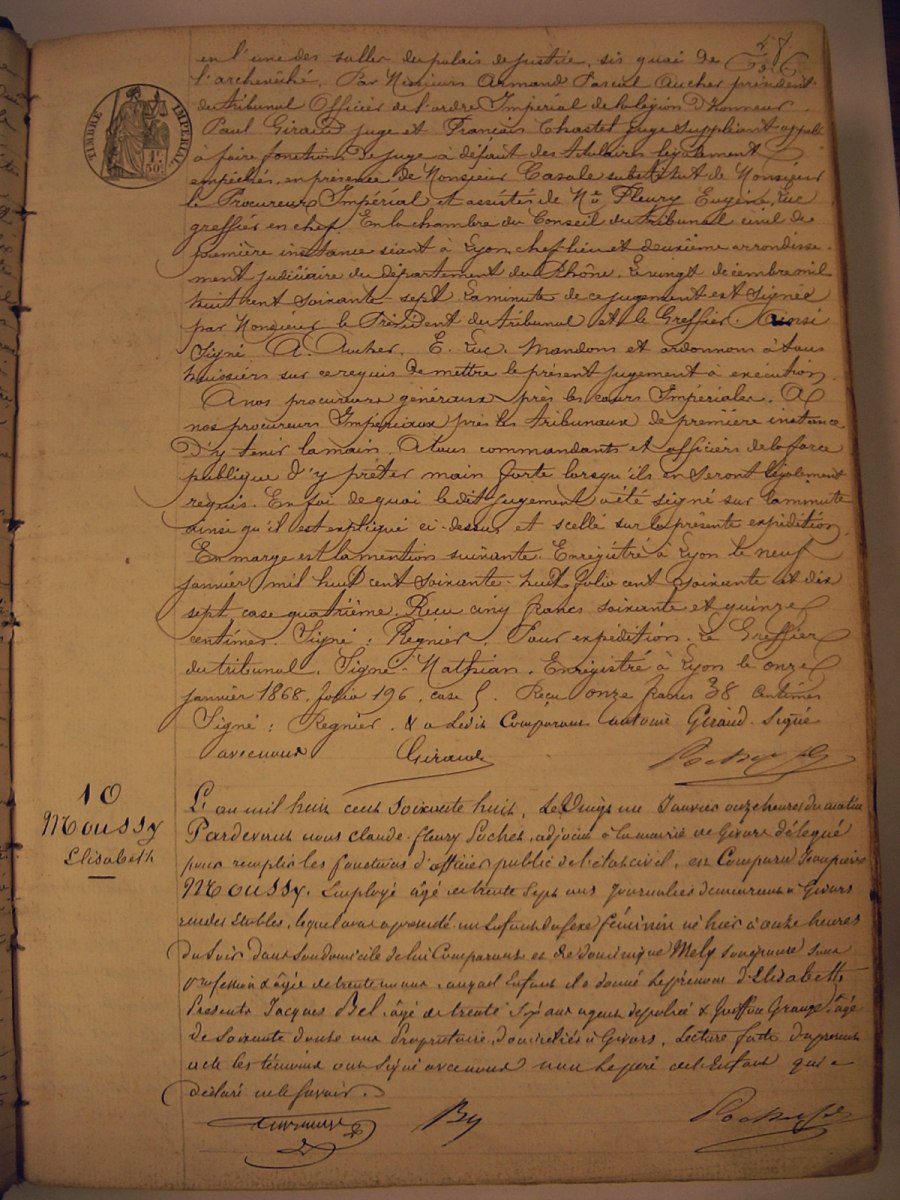 en l'une des salles du palais de justice, sis quai de
l'archevêché. Par Messieurs Armand Pascal Aucher président
du tribunal Officier de l'ordre Impérial de la légion d'honneur
TIMBRE IMPERIAL
1F 50C
Paul Giraud juge et François Chastel juge suppléant appelé
à faire fonctions de juge à défaut des titulaires légalement
empêchés, en présence de Monsieur Casale substitut de Monsieur
le Procureur Impérial et assistés de Me Fleury Eugène Luc
greffier en chef. En la chambre du Conseil du tribunal civil de
première instance séant à Lyon, chef lieu et deuxième arrondisse-
ment judiciaire du département du Rhône. Le vingt décembre mil
huit cent soixante-sept. La minute de ce jugement est signée
par Monsieur le Président du tribunal et le Greffier. Ainsi
Signé A. Aucher. E. Luc. Mandons et ordonnons à tous
huissiers sur ce requis de mettre le présent jugement à exécution.
A nos procureurs généraux près les cours Impériales. A
nos procureurs Impériaux près les tribunaux de première instance
D'y tenir la main. A tous commandants et officiers de la force
publique d'y prêter main forte lorsqu'ils en seront légalement
requis. En foi de quoi le dit jugement a été signé sur la minute
ainsi qu'il est expliqué ci-dessus et scellé sur la présente expédition
En marge est la mention suivante. Enregistré à Lyon le neuf
janvier mil huit cent soixante-huit folio cent soixante et dix
sept case quatrième. Reçu cinq francs soixante et quinze
centimes. Signé : Regnier. Pour expédition. Le Greffier
du tribunal. Signé Mathian. Enregistré à Lyon le onze
janvier 1868. folio 196, case 5. Reçu onze francs 38 centimes
Signé : Regnier. Comparant Antoine Giraud. Signé
avec nous Giraud
10
Moussy
Elisabeth
L'an mil huit cent soixante huit, Le Vingt un Janvier onze heures du matin
Pardevant nous Claude Fleury Pochet, adjoint à la mairie de Givors délégué
pour remplir les fonctions d'officier public de l'état civil, est Comparu Jean pierre
Moussy, Employé âgé de trente sept ans journalier demeurant à Givors
rue des Etables, lequel nous a présenté un Enfant du sexe féminin né hier à onze heures
du soir dans son domicile de lui Comparant et de dominique Mely son épouse sans
profession âgée de trente un ans, auquel Enfant il a donné le prénom d'Elisabeth
Présents Jacques Bel âgé de trente Six ans agent de police & Grange âgé
de Soixante douze ans Propriétaire, domiciliés à Givors. Lecture faite du présent
acte les témoins ont signé avec nous non le père de l'Enfant qui a
déclaré ne le savoir.